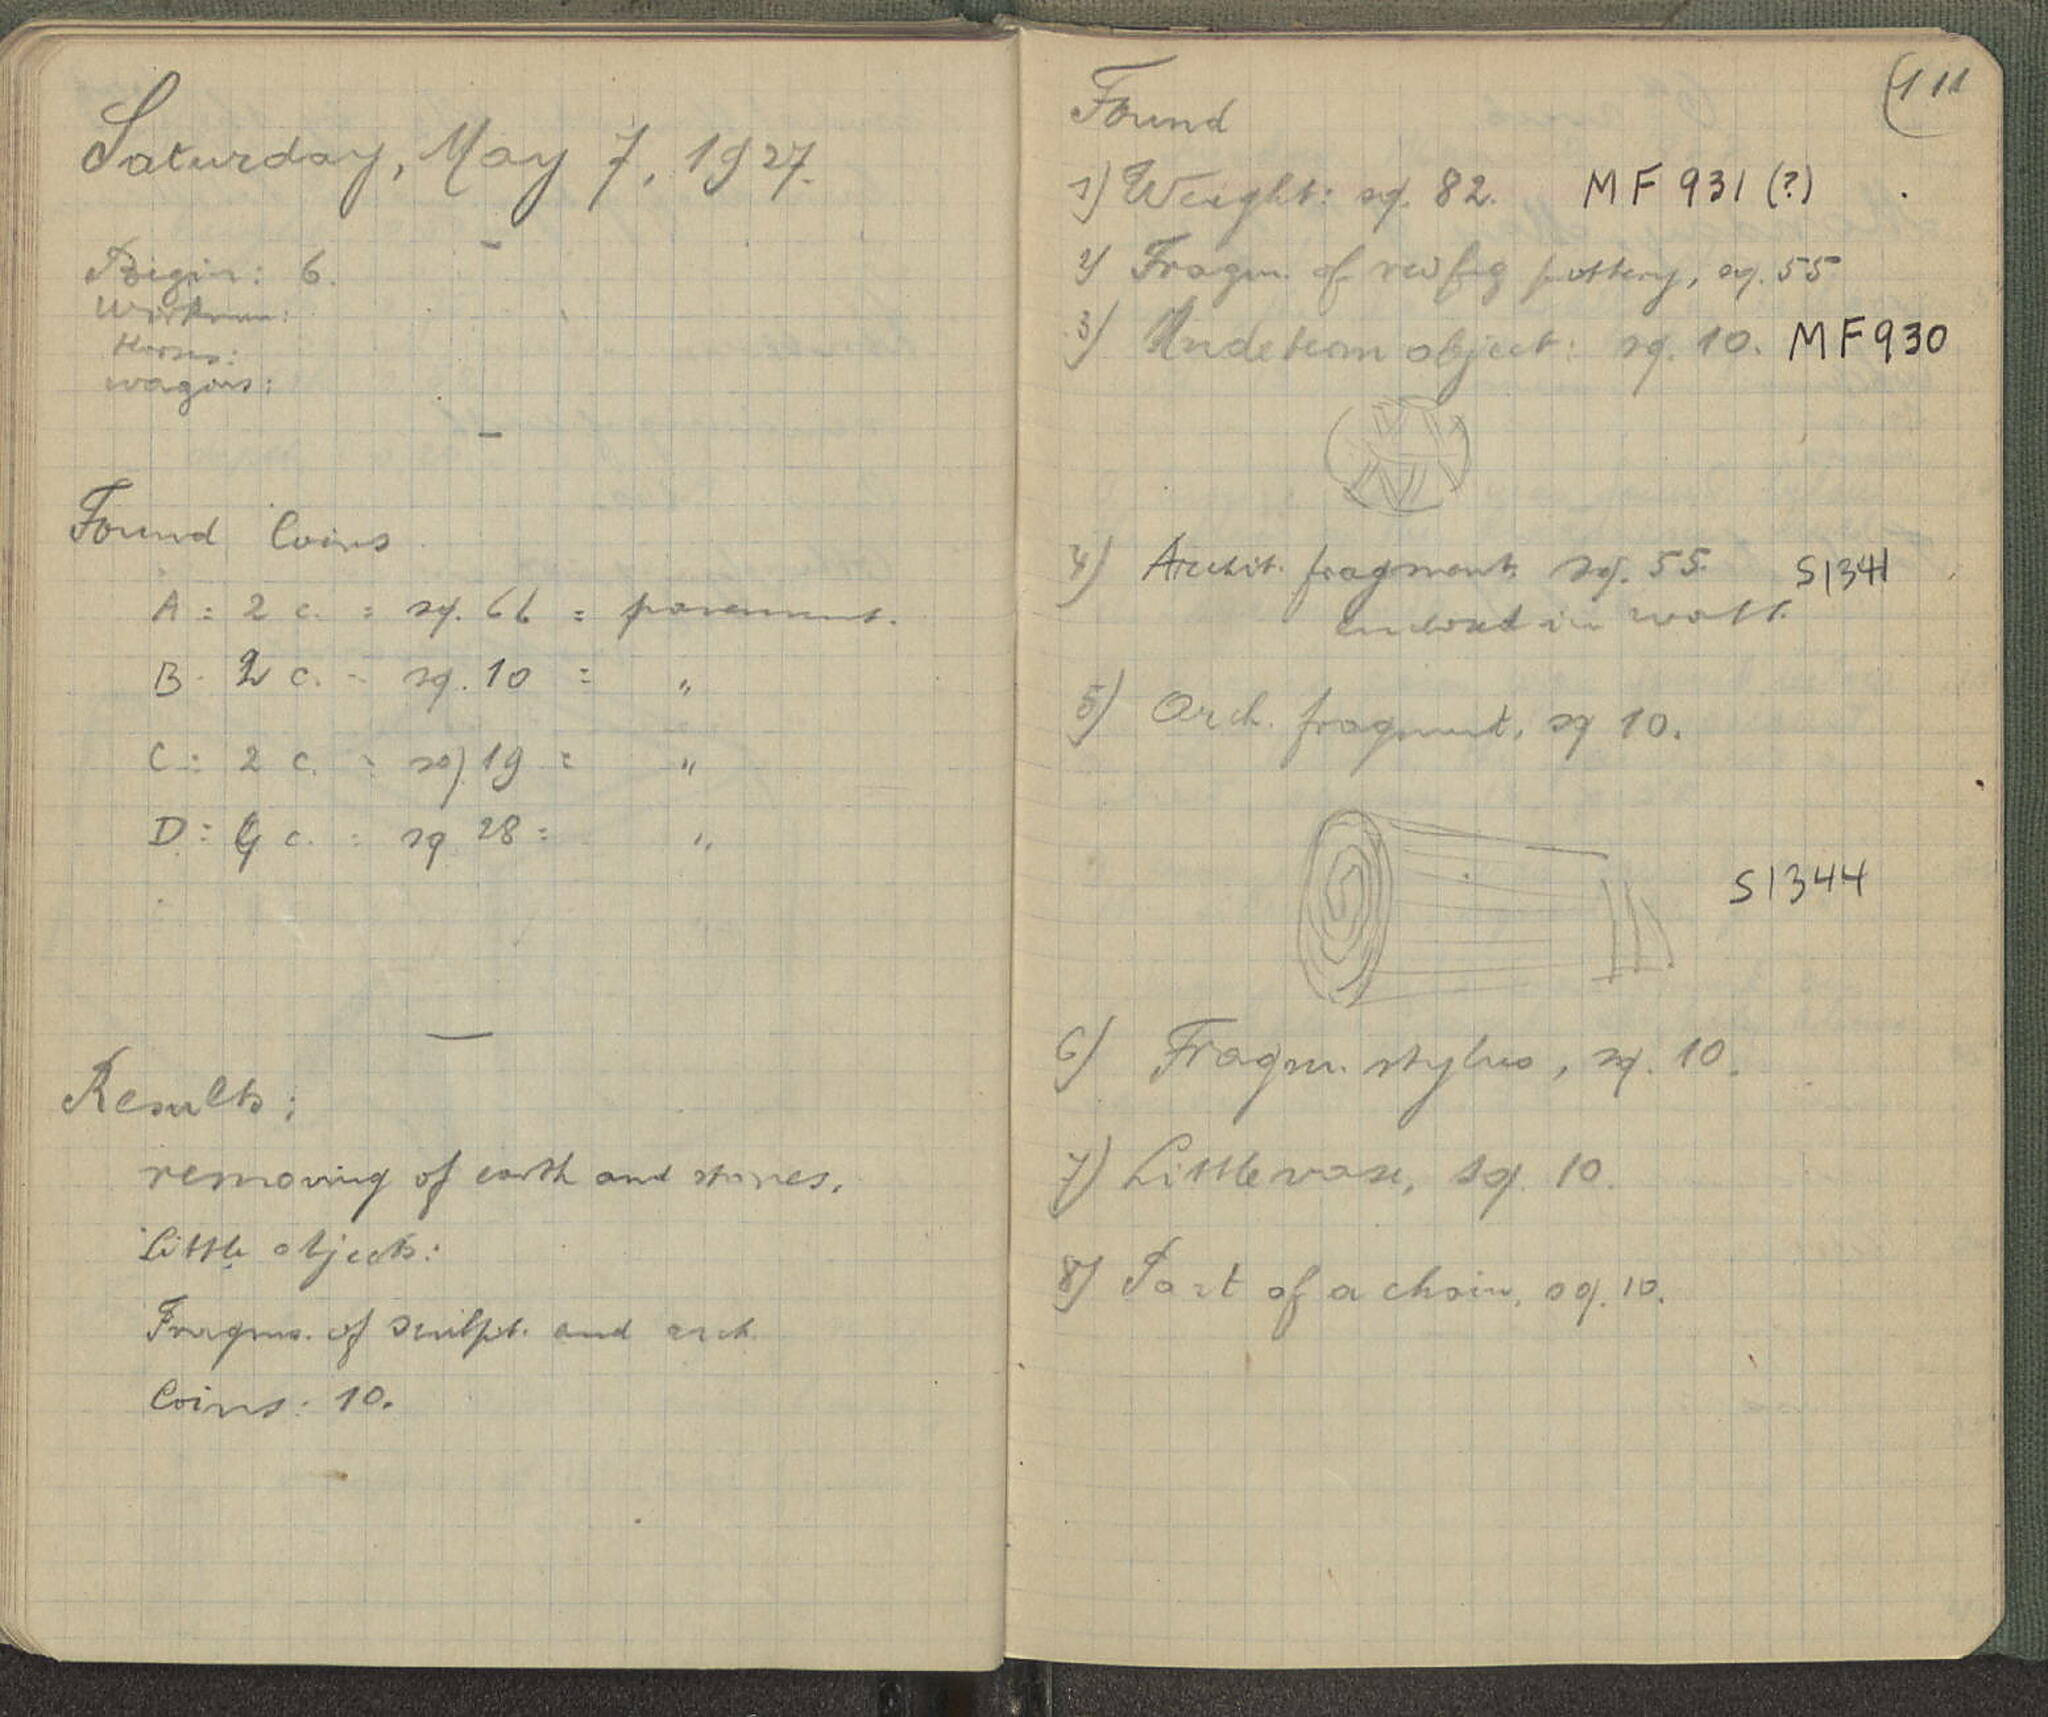 Saturday, May 7, 1927.
Begin: 6.
Workmen:
Horses:
wagons:
Found Coins
A = 2 c. = sq. 66 = pavement.
B. 2 c. = sq. 10 = "
C = 2 c. = sq. 19 = "
D = 4 c. = sq 28 = "
Results:
removing of earth and stones.
Little objects:
Fragms. of sculpt. and arch.
Coins: 10.
111
Found
1) Weight: sq. 82. MF 931 (?)
2) Fragm. of red fig pottery, sq. 55
3) Undeterm object: sq. 10. MF 930
4) Archit. fragment. sq. 55. S1341
in wall.
5) Arch. fragment, sq 10.
S1344
6) Fragm. stylus, sq. 10.
7) Little vase, sq. 10.
8) Part of a chain, sq. 10.